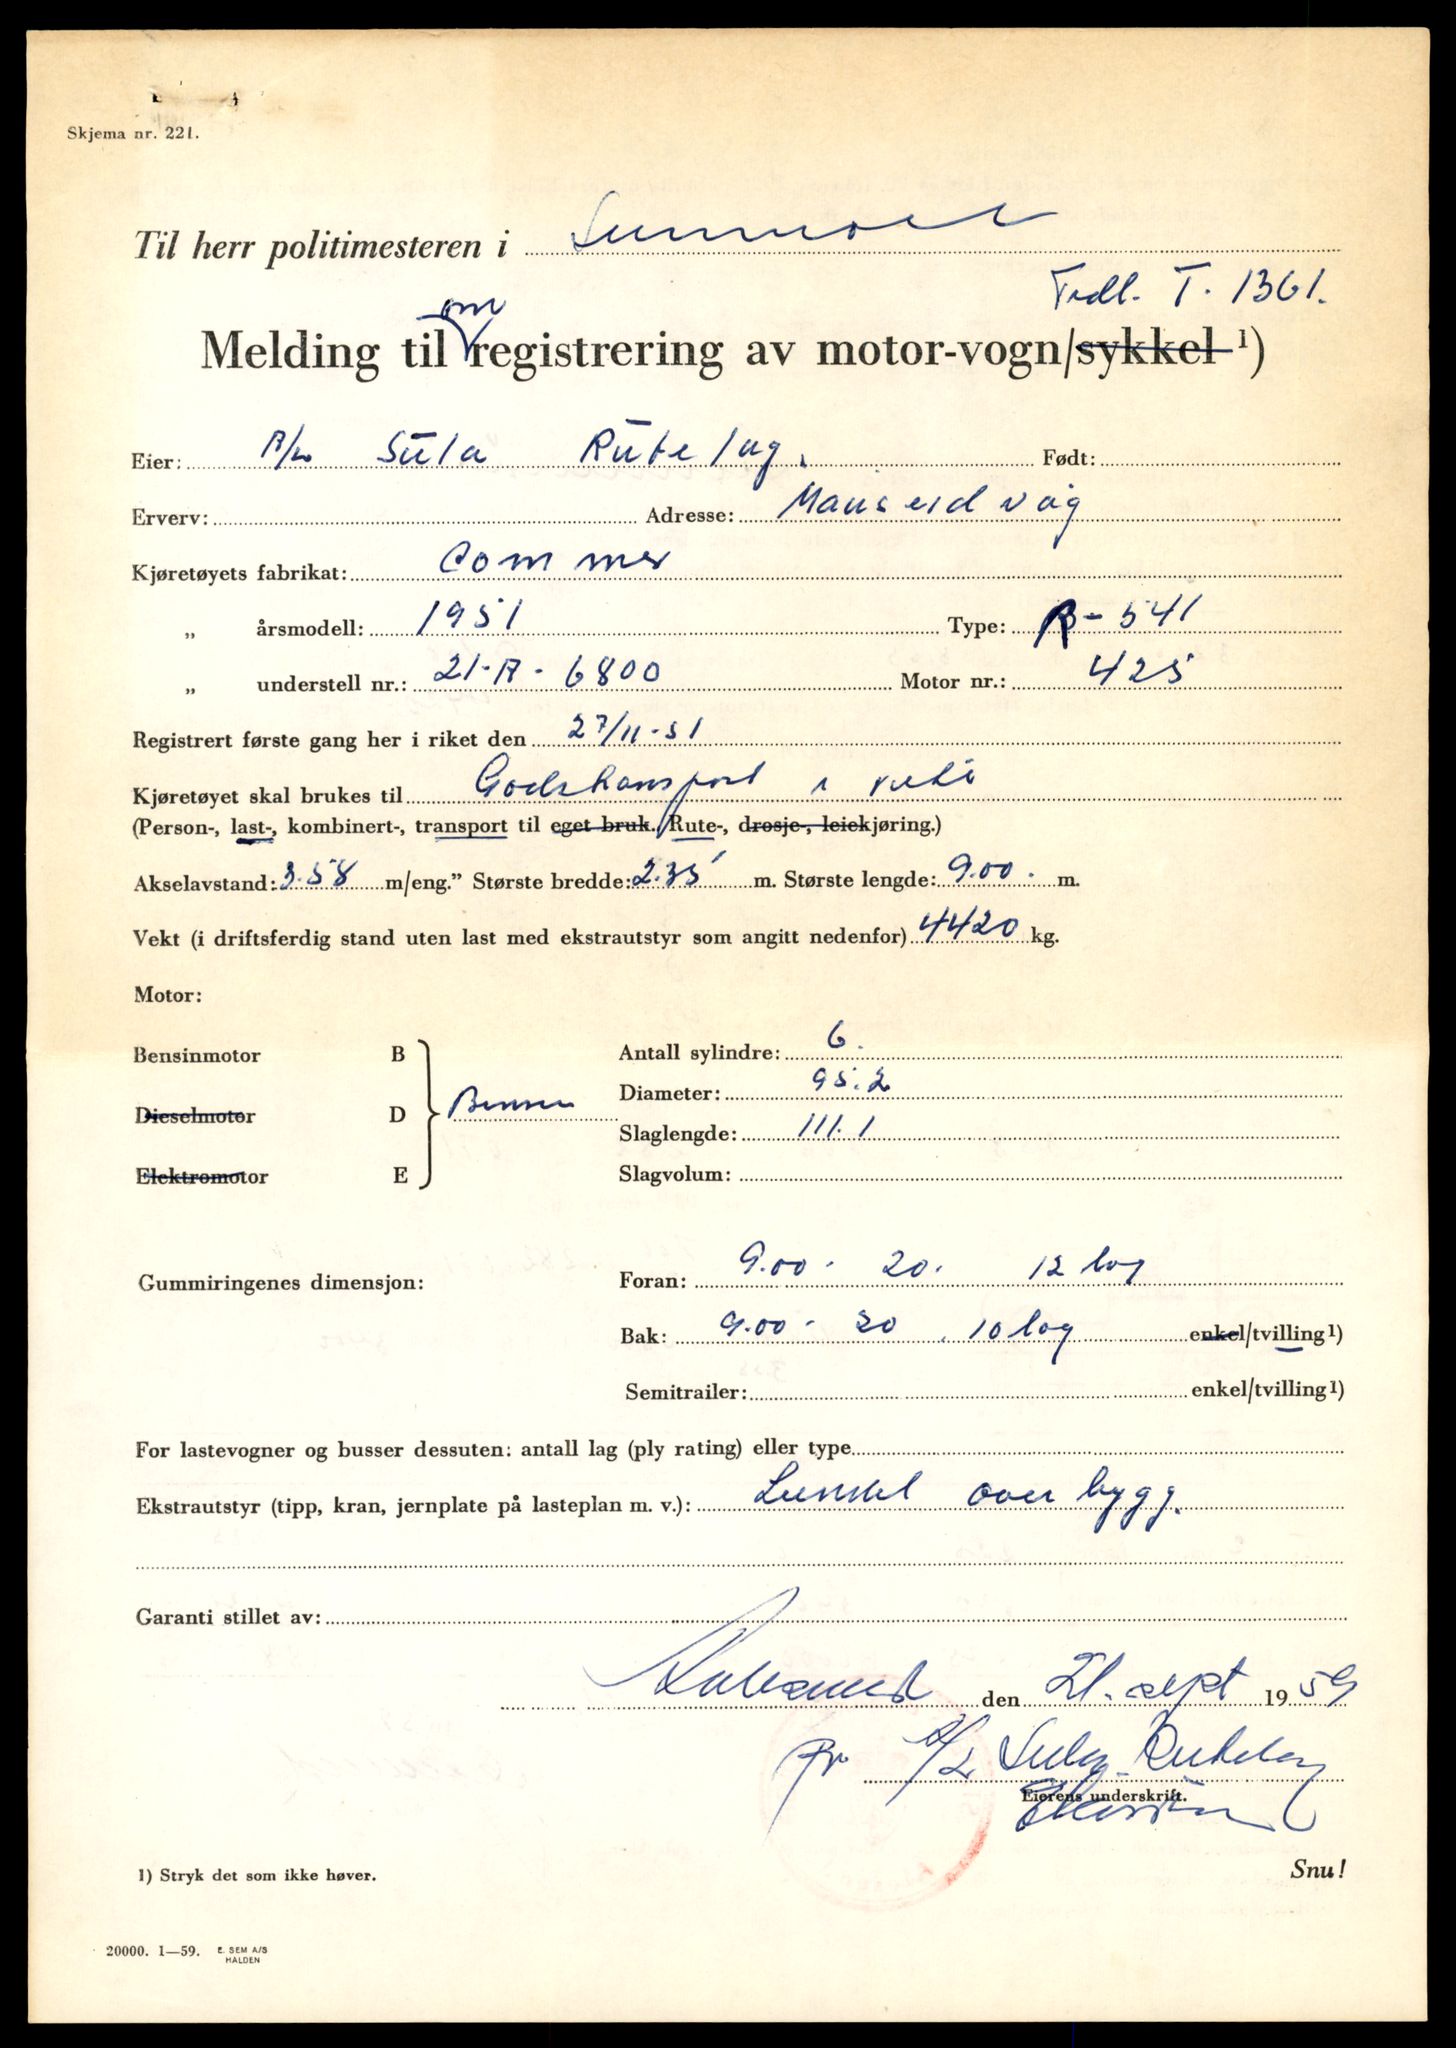 Skjema nr. 221.
Til herr politimesteren i Sunnmøre
Tidl. T. 1361.
om
Melding til registrering av motor-vogn/sykkel 1)
Eier: A/L Sula Rutelag. Født:
Erverv: Adresse: Mauseidvåg
Kjøretøyets fabrikat: Commer
„ årsmodell: 1951 Type: R-541
„ understell nr.: 21-A-6800 Motor nr.: 425
Registrert første gang her i riket den 27/11-51
Kjøretøyet skal brukes til Godstransport i rute
(Person-, last-, kombinert-, transport til eget bruk. Rute-, drosje-, leiekjøring.)
Akselavstand: 3.58 m/eng.” Største bredde: 2.35 m. Største lengde: 9.00. m.
Vekt (i driftsferdig stand uten last med ekstrautstyr som angitt nedenfor) 4420 kg.
Motor:
Bensinmotor B Antall sylindre: 6.
Diameter: 95.2
Dieselmotor D Bensin
Slaglengde: 111.1
Elektromotor E Slagvolum:
Gummiringenes dimensjon: Foran: 9.00-20. 12 lag
Bak: 9.00-20. 10 lag enkel/tvilling1)
Semitrailer: enkel/tvilling1)
For lastevogner og busser dessuten: antall lag (ply rating) eller type
Ekstrautstyr (tipp, kran, jernplate på lasteplan m. v.): Lukket overbygg.
Garanti stillet av:
den 21. sept 1959
pr A/L Sula Rutelag
Eierens underskrift.
1) Stryk det som ikke høver.
Snu!
20000. 1—59. E. SEM A/S
HALDEN